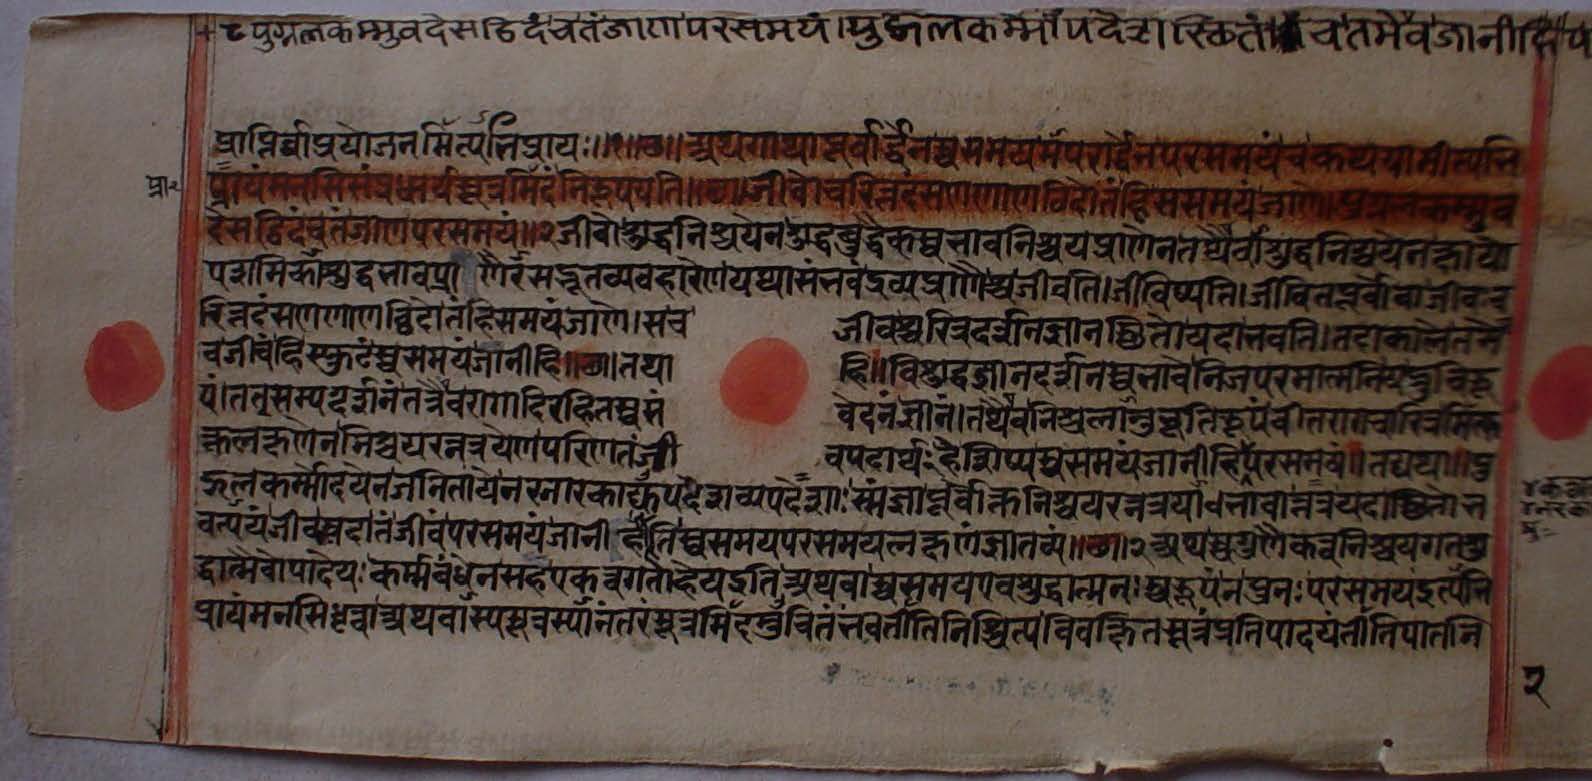 पुग्गलकम्मुवदेसठिदं च तं जाण परसमयं। पुद्गलकर्मोपदेशस्थितं च तमेव जानीहि प
प्राप्तिर्वा प्रयोजनमित्यभिप्रायः॥१॥छ॥ अथ गाथापूर्वार्द्धेन स्वसमयमपरार्द्धेन परसमयं च कथयामीत्यभि
प्रा२
प्रायं मनसि संप्रधार्य सूत्रमिदं निरूपयति॥छ॥ जीवो चरित्तदंसणणाणठिदो तं हि ससमयं जाणे। पुग्गलकम्मुव
देसट्ठिदं च तं जाण परसमयं॥२ जीवो शुद्धनिश्चयेन शुद्धबुद्धैकस्वभावनिश्चयप्राणेन तथैवाशुद्धनिश्चयेन क्षायो
पशमिकाशुद्धभावप्राणैरसद्भूतव्यवहारेण यथासंभवद्रव्यप्राणैश्च जीवति। जीविष्यति। जीवितपूर्वो वा जीवः च
रित्तदंसणणाणट्ठिदो तं हि समयं जाणे। स च जीवश्चरित्रदर्शनज्ञानस्थितो यदा भवति। तदा काले तमे
व जीवं हि स्फुटं स्वसमयं जानीहि॥छ॥ तथा हि॥ विशुद्धज्ञानदर्शनस्वभावे निजपरमात्मनि यद्रुचिरू
पं। तत् सम्यग्दर्शनं तत्रैव रागादिरहितस्वसं वेदनं ज्ञानं। तथैव निश्चलानुभूतिरूपं वीतरागचारित्रमित्यु
क्तलक्षणेन निश्चयरत्नत्रयेण परिणतं जी वपदार्थं हे शिष्य स्वसमयं जानीहि परसमयं॥ तद्यथा॥ पु
द्गलकर्मोदयेन जनिता ये नरनारकाद्युपदेशव्यपदेशाः संज्ञा पूर्वोक्तनिश्चयरत्नत्रयाभावात्तत्र यदा स्थितो भ
वत्ययं जीवस्तदा तं जीवं परसमयं जानीहीति स्वसमयपरसमयलक्षणं ज्ञातव्यं॥छ॥२ अथ स्वगुणैकत्वनिश्चयगतशु
द्धात्मैवोपादेयः कर्मबंधेन सहैकत्वगतो हेय इति अथवा स्वसमय एव शुद्धात्मनः स्वरूपं न पुनः परसमय इत्यभि
प्रायं मनसि धृत्वा अथवास्य सूत्रस्यानंतरं सूत्रमिदमुचितं भवतीति निश्चित्य विवक्षितसूत्रं प्रतिपादयंतीति पातनि
२